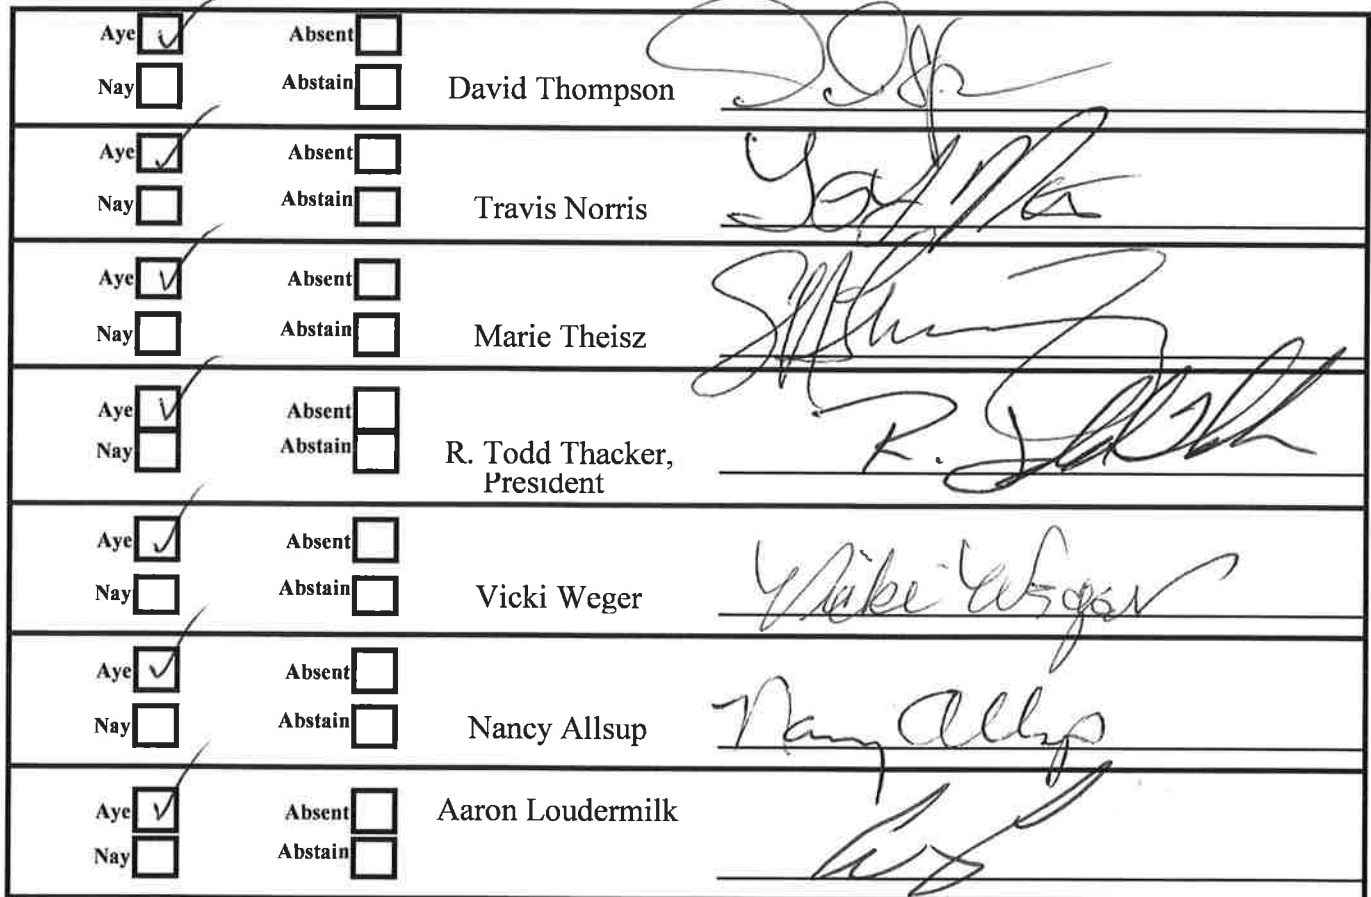 Aye Absent
Nay Abstain David Thompson
Aye Absent
Nay Abstain Travis Norris
Aye Absent
Nay Abstain Marie Theisz
Aye Absent
Nay Abstain R. Todd Thacker,
President
R.
Aye Absent
Nay Abstain Vicki Weger
Vicki Weger
Aye Absent
Nay Abstain Nancy Allsup
Nancy Allsup
Aye Absent Aaron Loudermilk
Nay Abstain